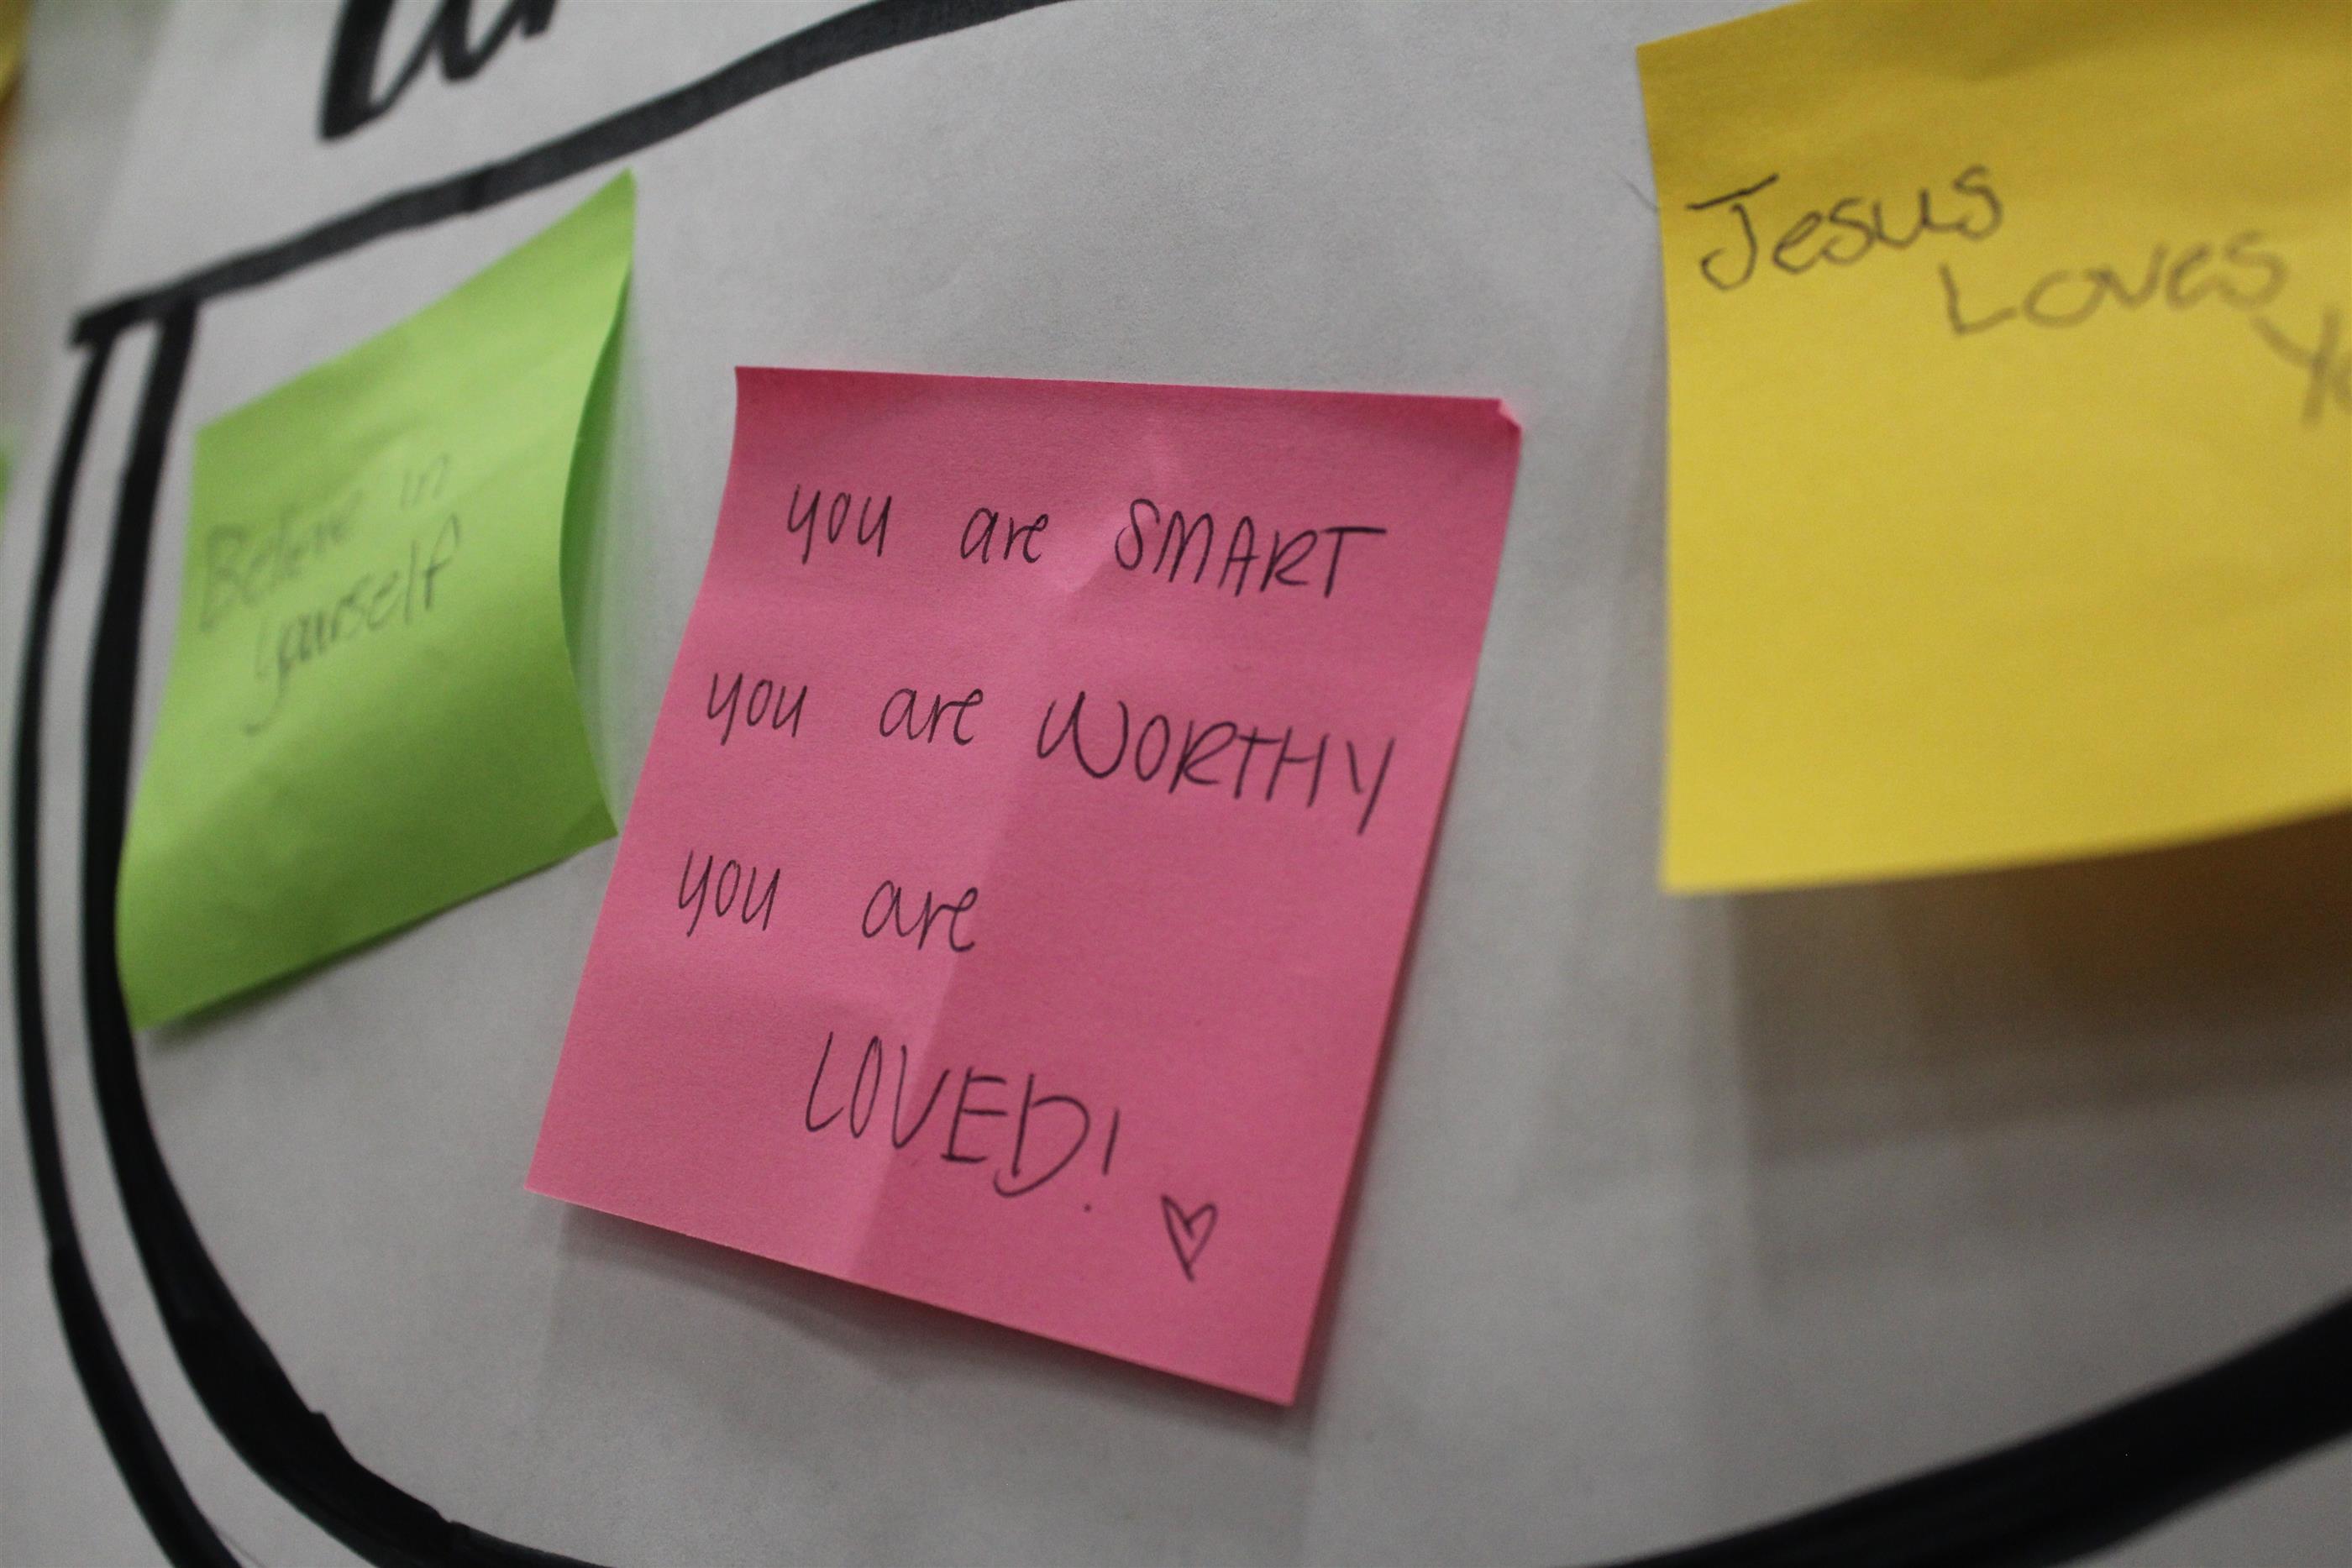 Believe in
yourself
you are SMART
you are WORTHY
you are
LOVED!
Jesus
Loves